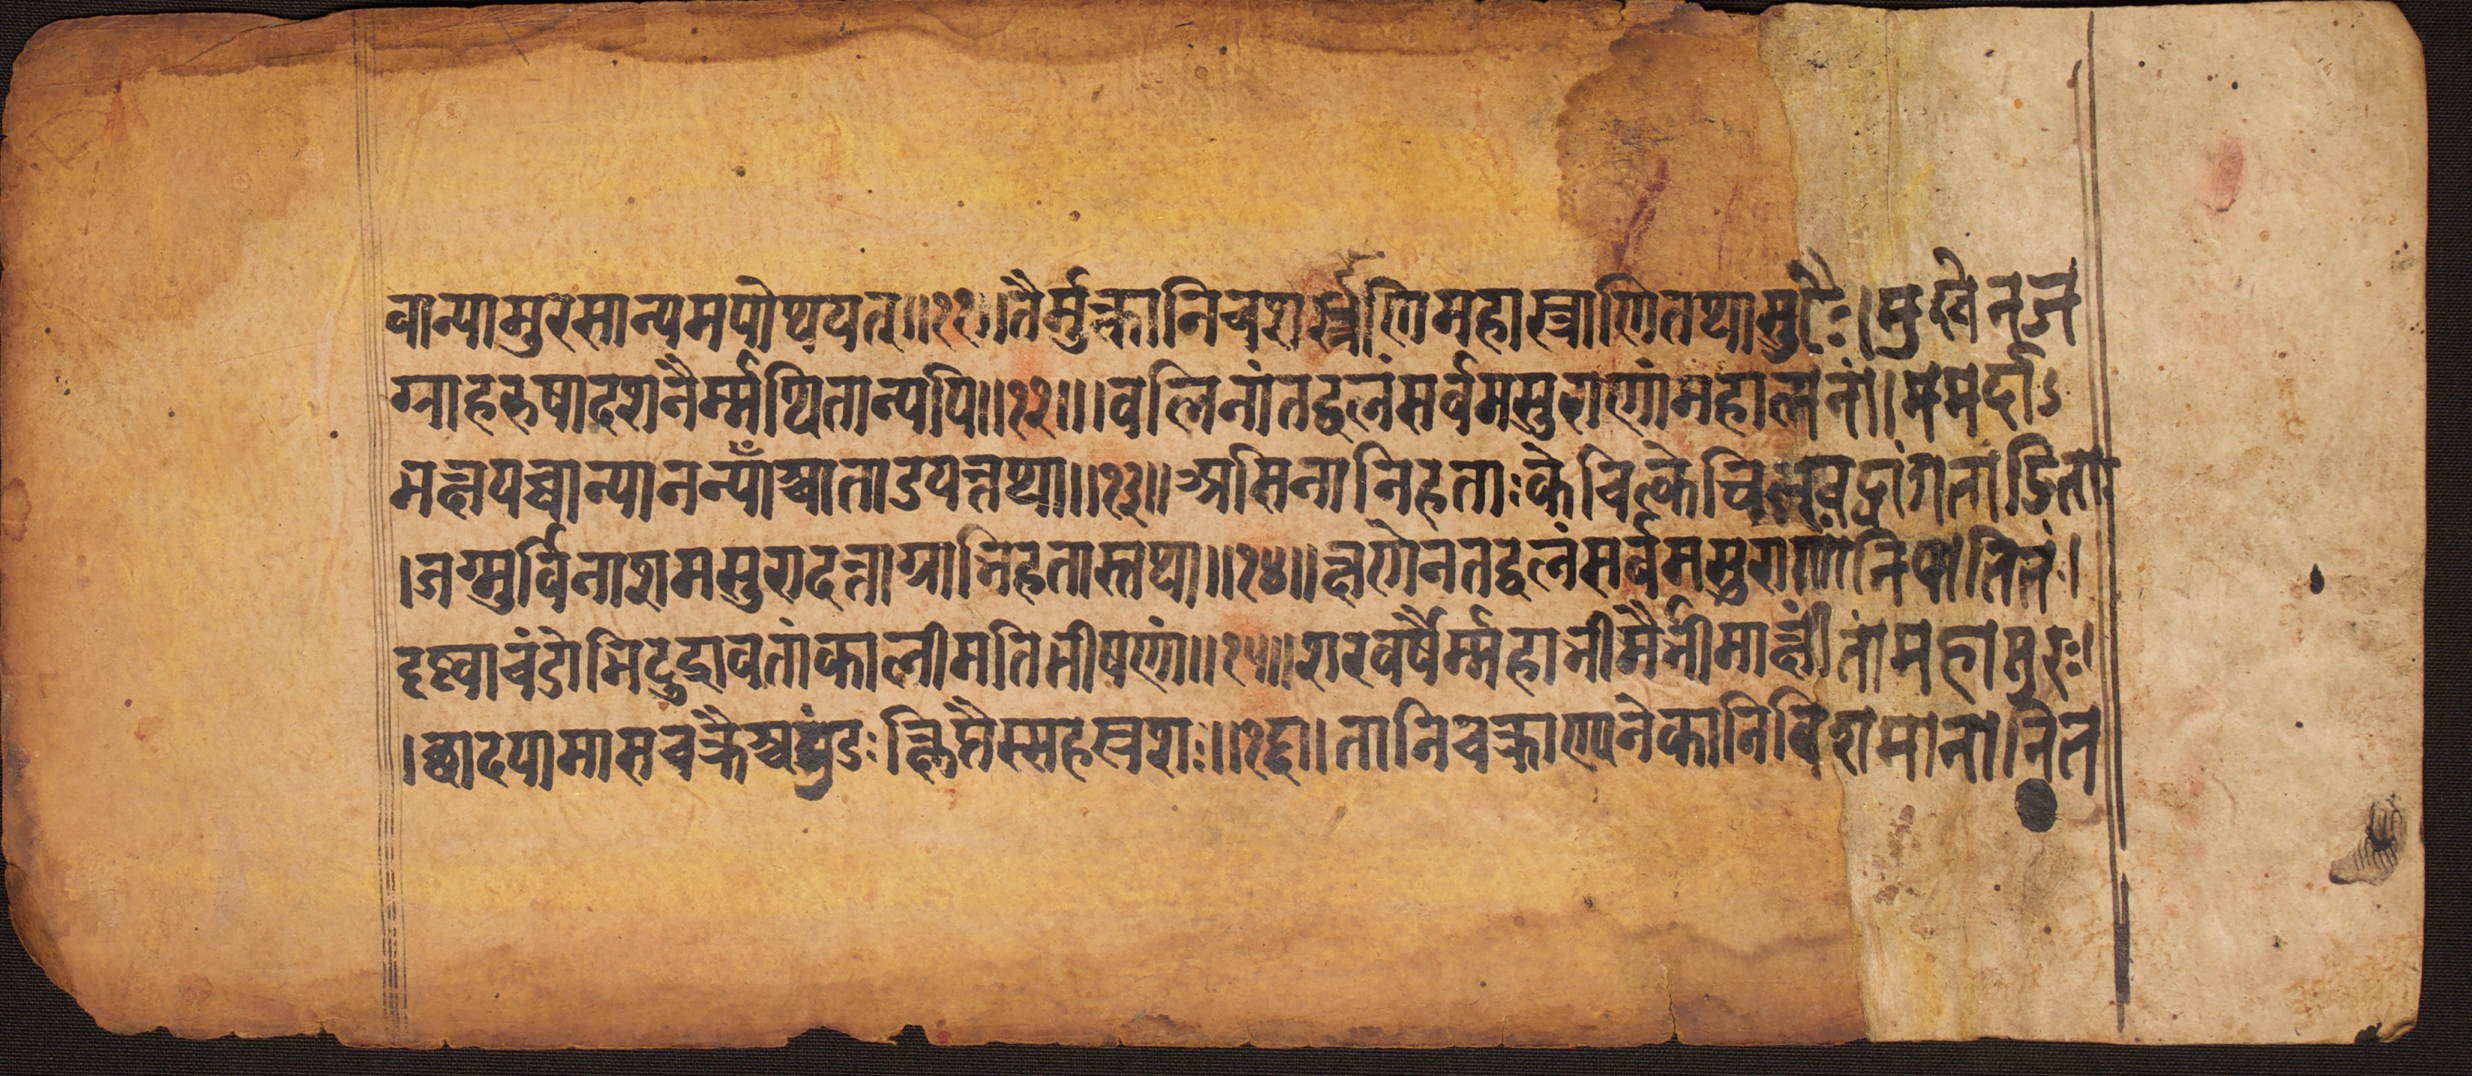 वान्यामुरसान्यमपोथयत्॥११॥तैर्मुक्तानिचशस्त्राणिमहास्त्राणितथासुरैः।मुखेनज
ग्राहरुषादशनैर्म्मथितान्यपि॥१२॥।वलिनांतद्वलंसर्वमसुराणांमहात्मनां।ममर्दाऽ
भक्षयच्चान्यानन्याँश्चाताडयत्तथा॥१३॥असिनानिहताःकेचित्केचित्खट्वांगताडिताः
।जग्मुर्विनाशमसुरादन्ताग्राभिहतास्तथा॥१४॥क्षणेनतद्वलंसर्वमसुराणांनिपातितं।
दृष्ट्वाचंडोभिदुद्रावतांकालीमतिभीषणां॥१५॥शरवर्षैर्म्महाभीमैर्भीमाक्षीं तांमहासुरः।
।छादयामासचक्रैश्चमुंडःक्षिप्तैस्सहस्रशः॥१६॥तानिचक्राण्यनेकानिविशमानानित